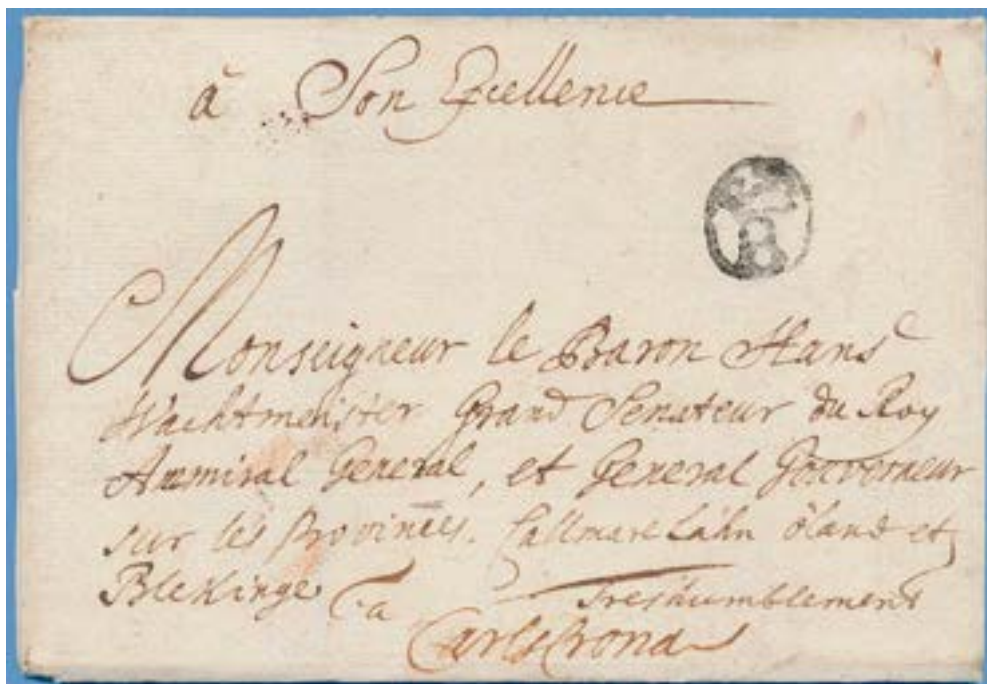 à Son Excellence
B
Monseigneur le Baron Hans
Wachtmeister Grand Senateur du Roy
Ammiral General, et General Gouverneur
sur les Provinces. Callmare Lähn öland et
Blekinge treshumblement
a
CarlsCrona